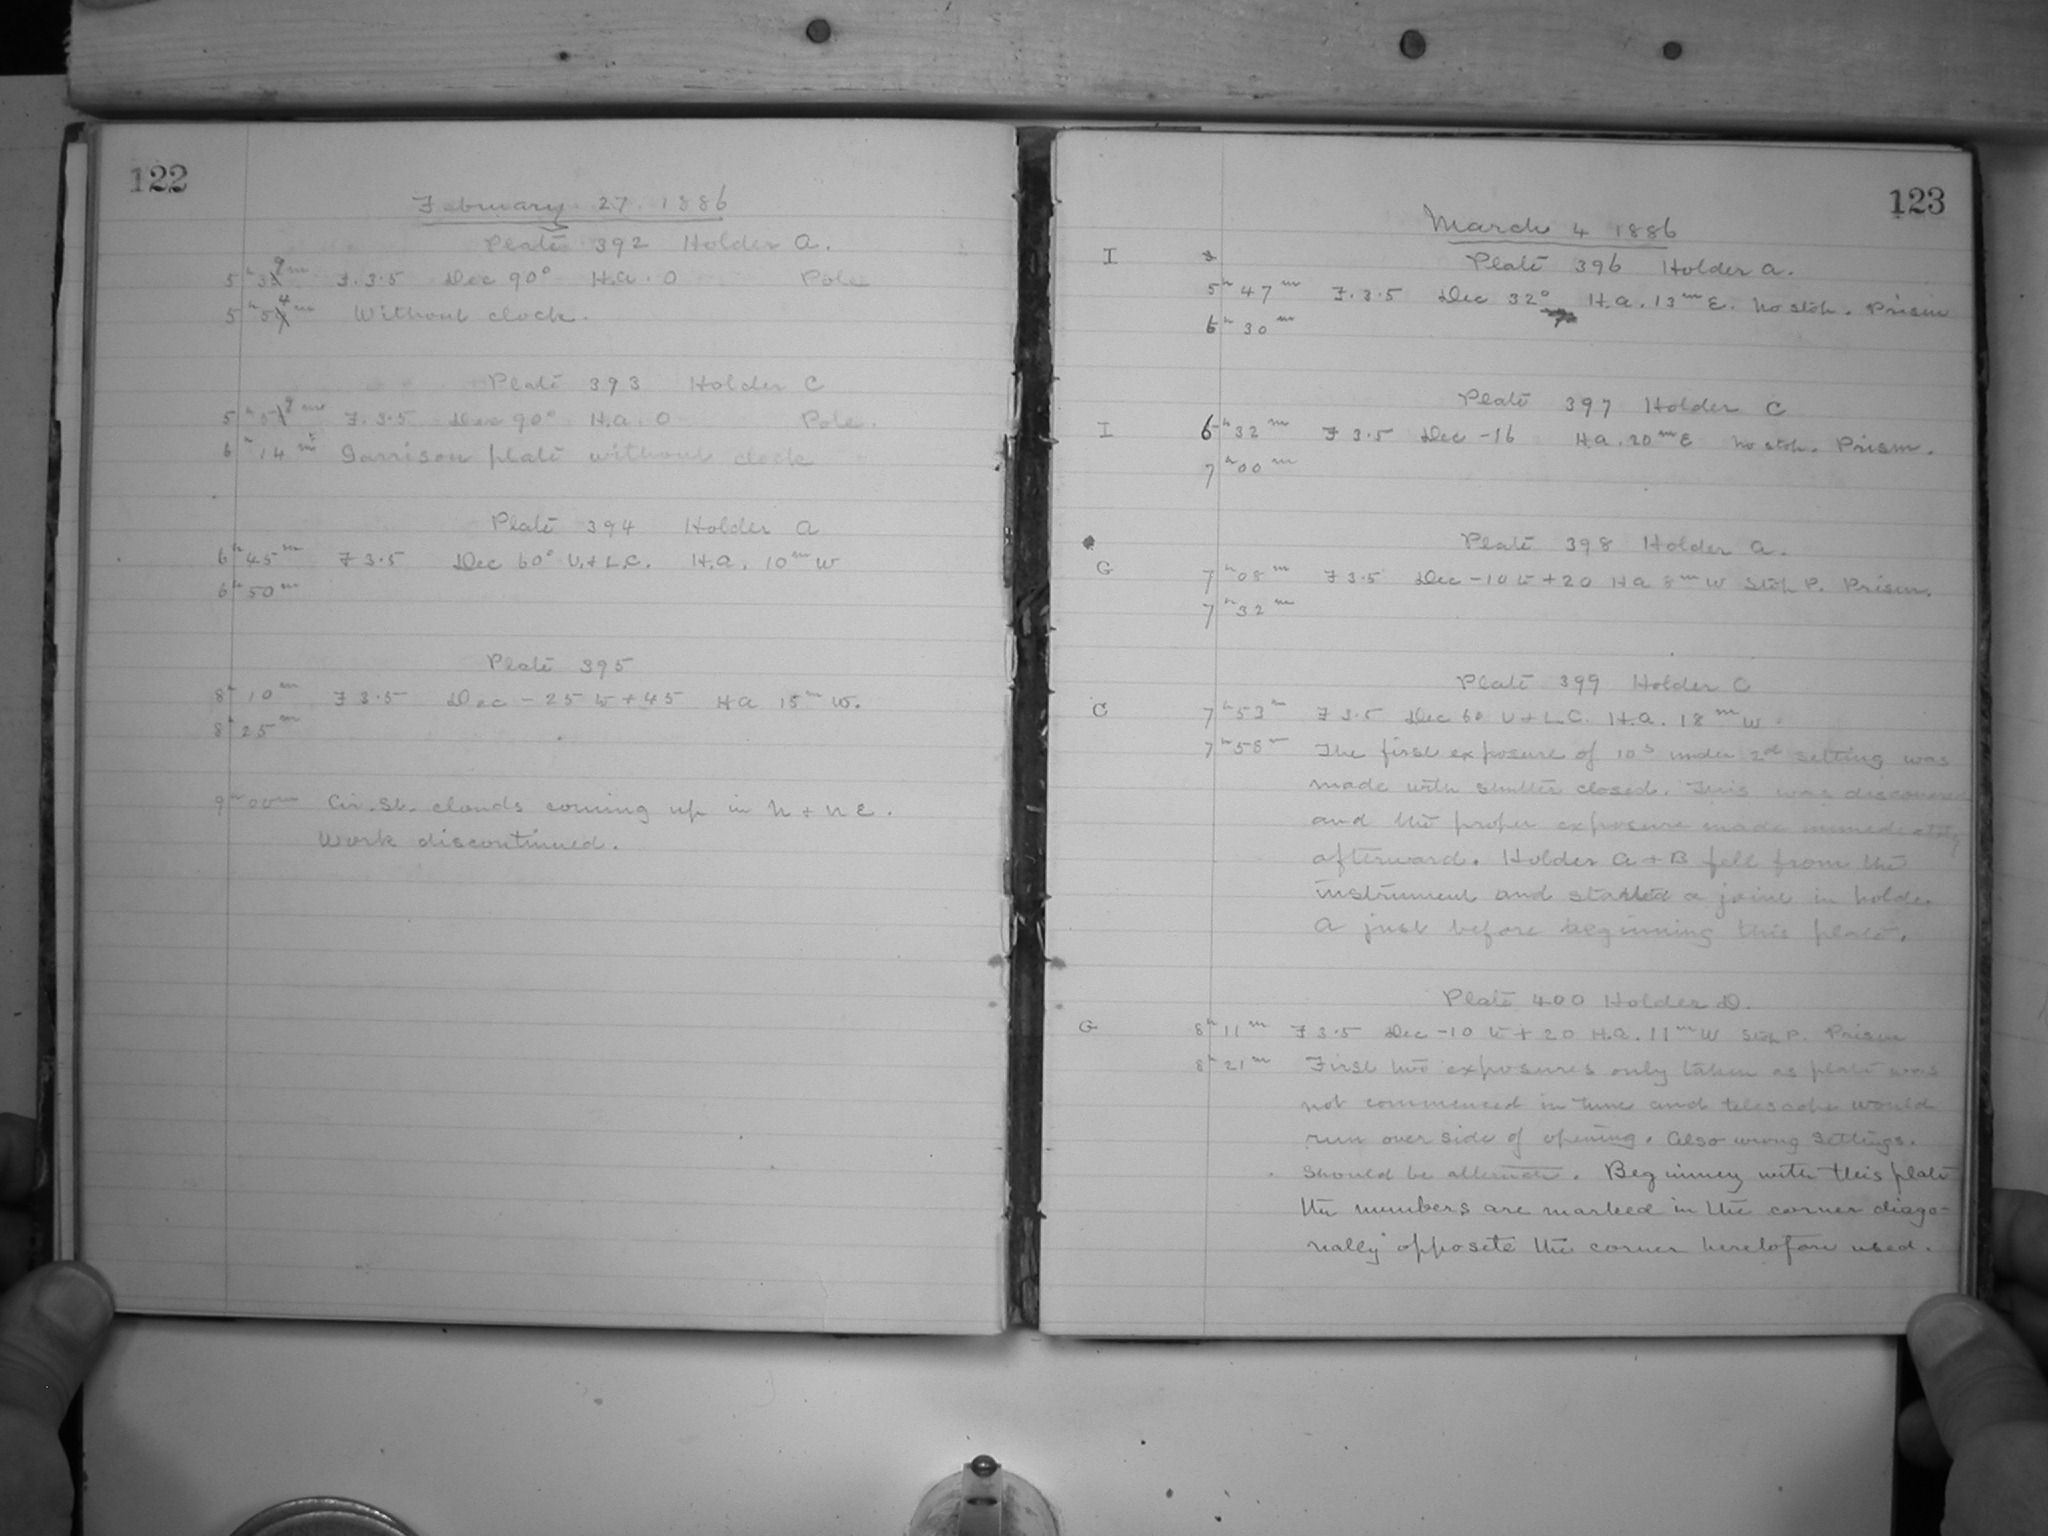 122
February 27 1886
Plate 392 Holder A.
5h 39m F. 3.5 Dec 90° H.A. 0 Pole
5h 54m Without clock.
Plate 393 Holder C
5h 59m F. 3.5 Dec 90° H.A. 0 Pole.
6h 14m Garrison plate without clock
Plate 394 Holder A
6h 45m F 3.5 Dec 60° U. + L.C. H.A. 10m W
6h 50m
Plate 395
8h 10m F 3.5 Dec -25 to +45 HA 15m W.
8h 25m
9h 00m Cir. St. clouds coming up in N + NE.
Work discontinued.
123
March 4 1886
I Plate 396 Holder A.
5h 47m F. 3.5 Dec 32° H.A. 13m E. No stop. Prism
6h 30m
Plate 397 Holder C
I 6h 32m F 3.5 Dec -16 H.A. 20m E No stop. Prism.
7h 00m
Plate 398 Holder A.
G 7h 08m F 3.5 Dec -10 to +20 HA 8m W Stop P. Prism.
7h 32m
Plate 399 Holder C
C 7h 53m F 3.5 Dec 60 U + L.C. H.A. 18m W.
7h 58m The first exposure of 10s under 2d setting was
made with shutter closed. This was discovered
and the proper exposure made immediately
afterward. Holder A + B fell from the
instrument and started a joint in holder
A just before beginning this plate.
Plate 400 Holder D.
G 8h 11m F 3.5 Dec -10 to +20 H.A. 11m W Stop P. Prism
8h 21m First two exposures only taken as plate was
not commenced in time and telescope would
run over side of opening. Also wrong settings.
Should be alternate. Beginning with this plate
the numbers are marked in the corner diago-
nally opposite the corner heretofore used.